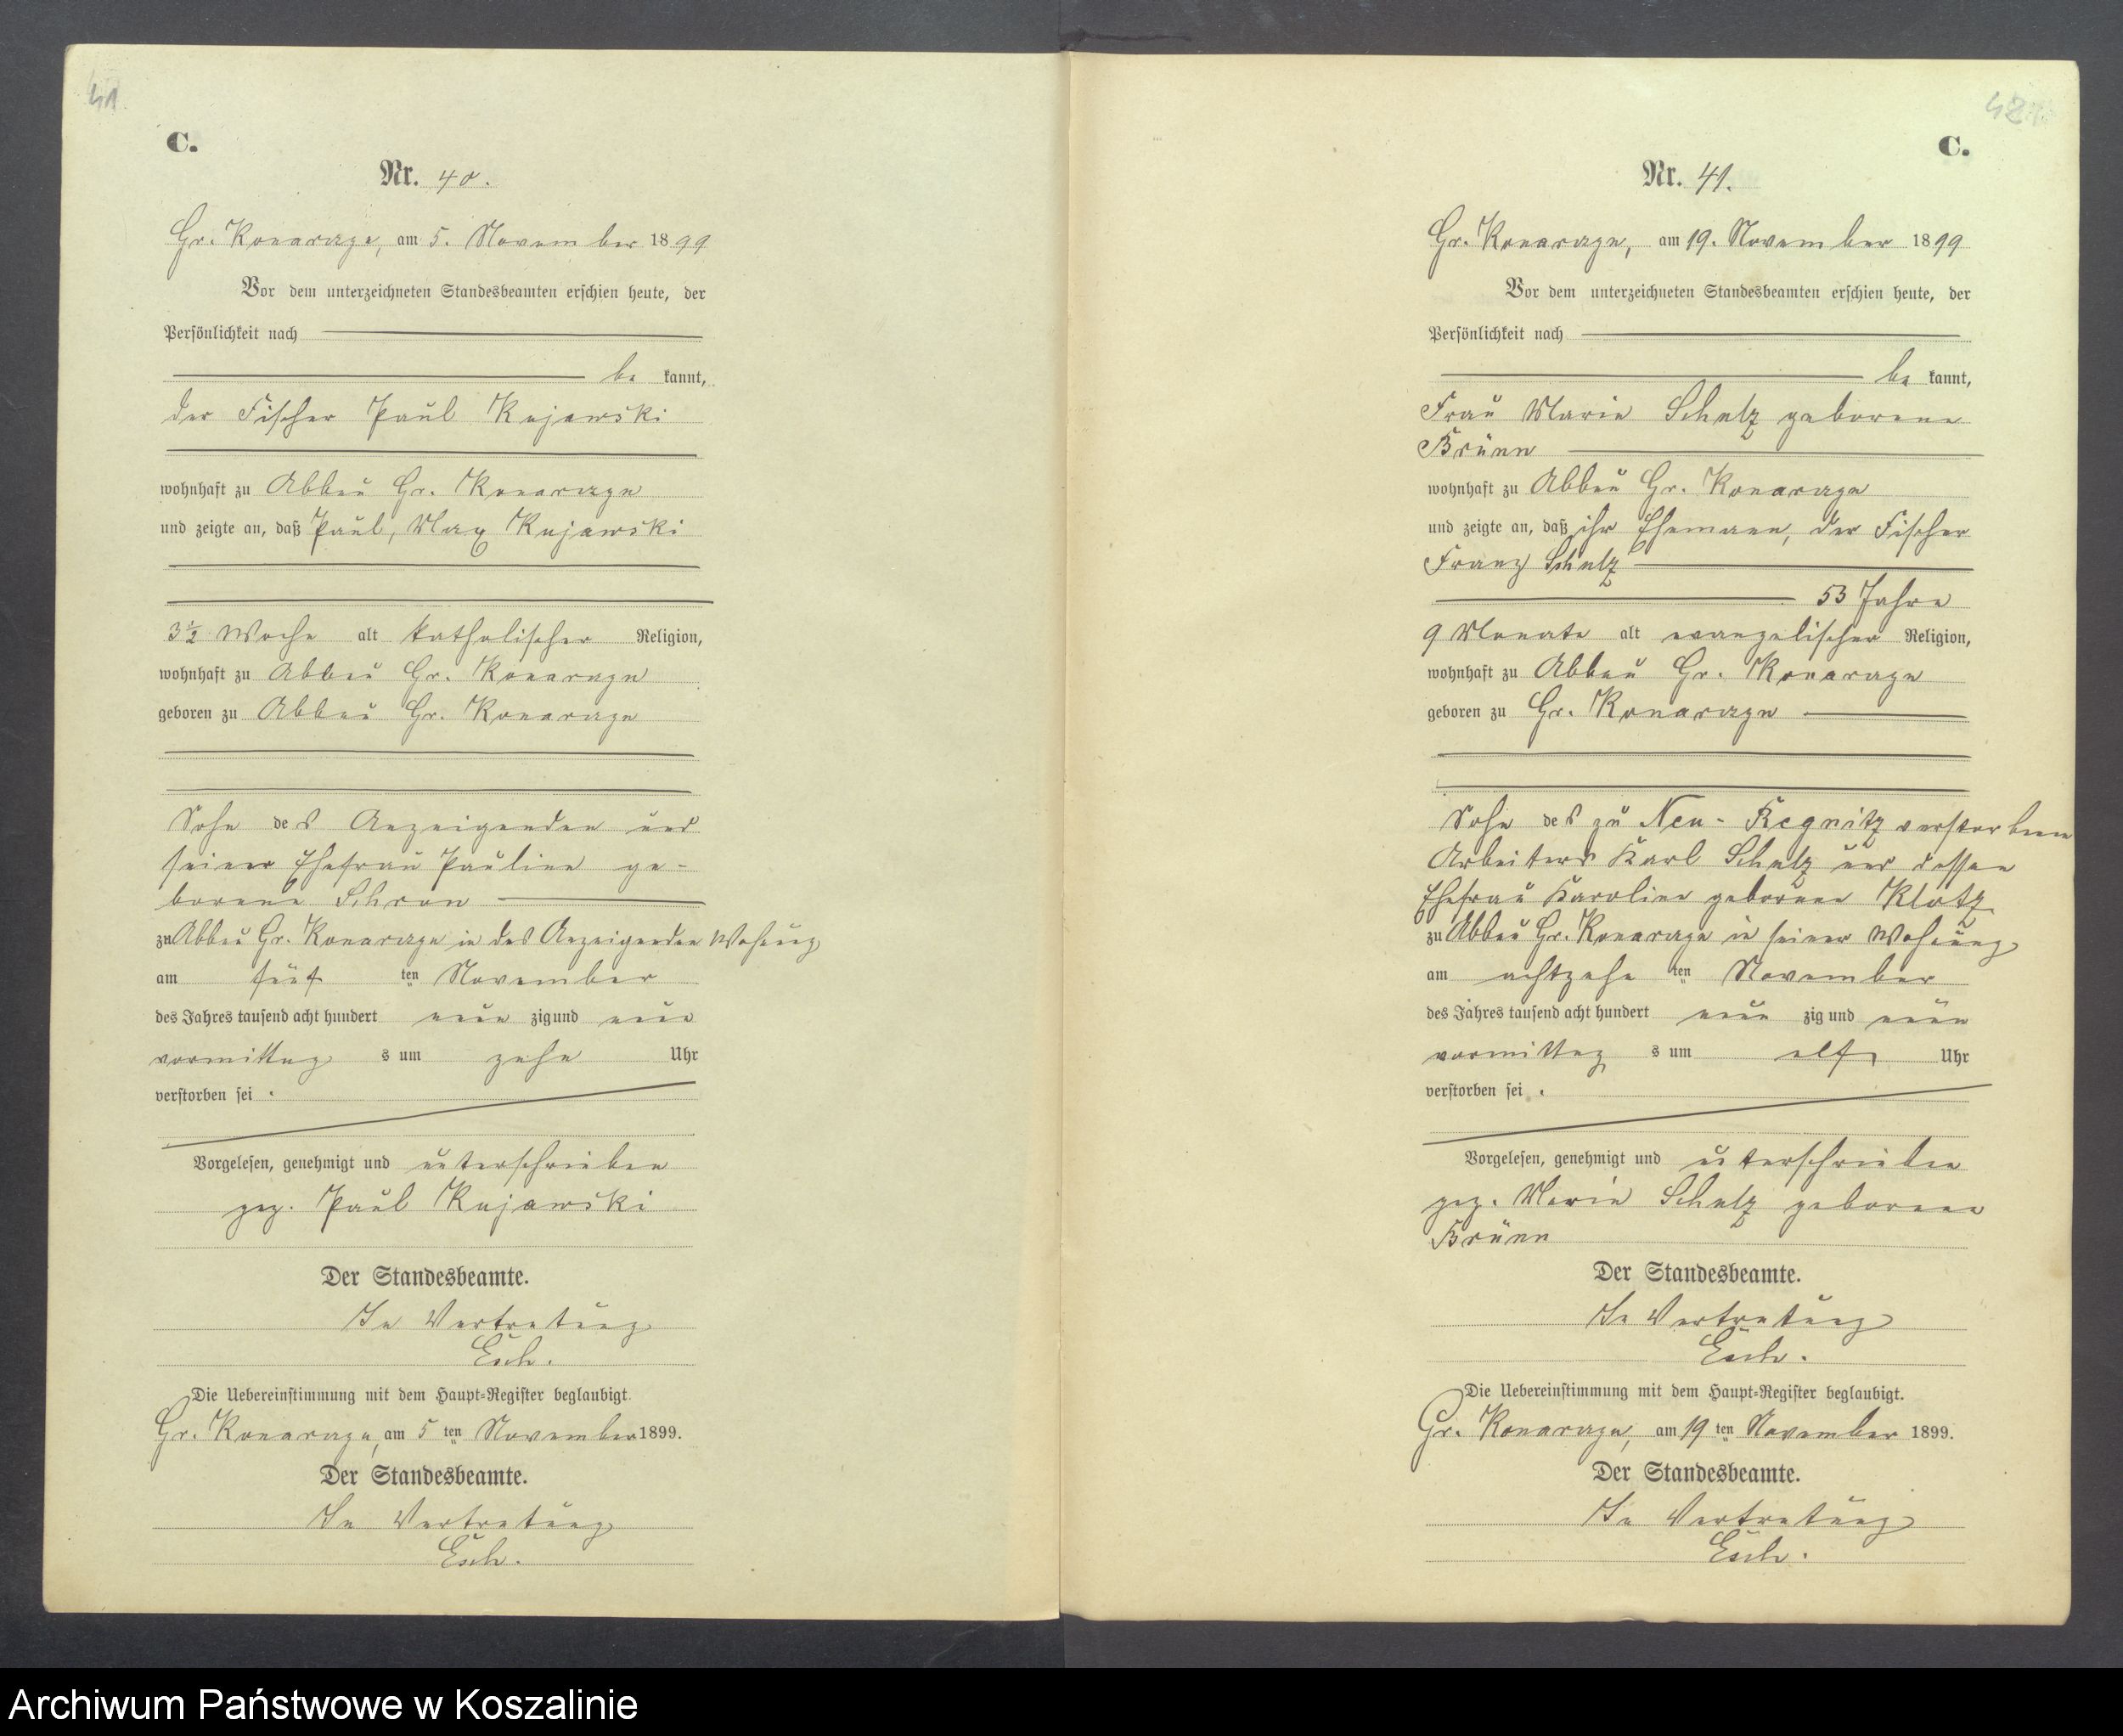 41
C.
Nr. 40.
Gr. Konarczyn, am 5. November 1899
Vor dem unterzeichneten Standesbeamten erschien heute, der
Persönlichkeit nach
be kannt,
der Fischer Paul Kujawski
wohnhaft zu Abbau Gr. Konarczyn
und zeigte an, daß Paul, Max Kujawski
3½ Woche alt katholischer Religion,
wohnhaft zu Abbau Gr. Konarczyn
geboren zu Abbau Gr. Konarczyn
Sohn des Anzeigenden und
seiner Ehefrau Pauline ge-
borene Schron
zu Abbau Gr. Konarczyn in des Anzeigenden Wohnung
am fünf ten November
des Jahres tausend acht hundert neun zig und neun
vormittag s um zehn Uhr
verstorben sei.
Vorgelesen, genehmigt und unterschrieben
gez. Paul Kujawski
Der Standesbeamte.
In Vertretung
Esch.
Die Uebereinstimmung mit dem Haupt-Register beglaubigt.
Gr. Konarczyn, am 5 ten November 1899.
Der Standesbeamte.
In Vertretung
Esch.
42
C.
Nr. 41.
Gr. Konarczyn, am 19. November 1899
Vor dem unterzeichneten Standesbeamten erschien heute, der
Persönlichkeit nach
be kannt,
Frau Marie Schulz geborene
Brünn
wohnhaft zu Abbau Gr. Konarczyn
und zeigte an, daß ihr Ehemann, der Fischer
Franz Schulz
53 Jahre
9 Monate alt evangelischer Religion,
wohnhaft zu Abbau Gr. Konarczyn
geboren zu Gr. Konarczyn
Sohn des zu Neu- verstorbenen
Arbeiters Karl Schulz und dessen
Ehefrau Karoline geborenen Klotz
zu Abbau Gr. Konarczyn in seiner Wohnung
am achtzehn ten November
des Jahres tausend acht hundert neun zig und neun
vormittag s um elf Uhr
verstorben sei.
Vorgelesen, genehmigt und unterschrieben
gez. Marie Schulz geborene
Brünn
Der Standesbeamte.
In Vertretung
Esch.
Die Uebereinstimmung mit dem Haupt-Register beglaubigt.
Gr. Konarczyn, am 19 ten November 1899.
Der Standesbeamte.
In Vertretung
Esch.
Archiwum Państwowe w Koszalinie